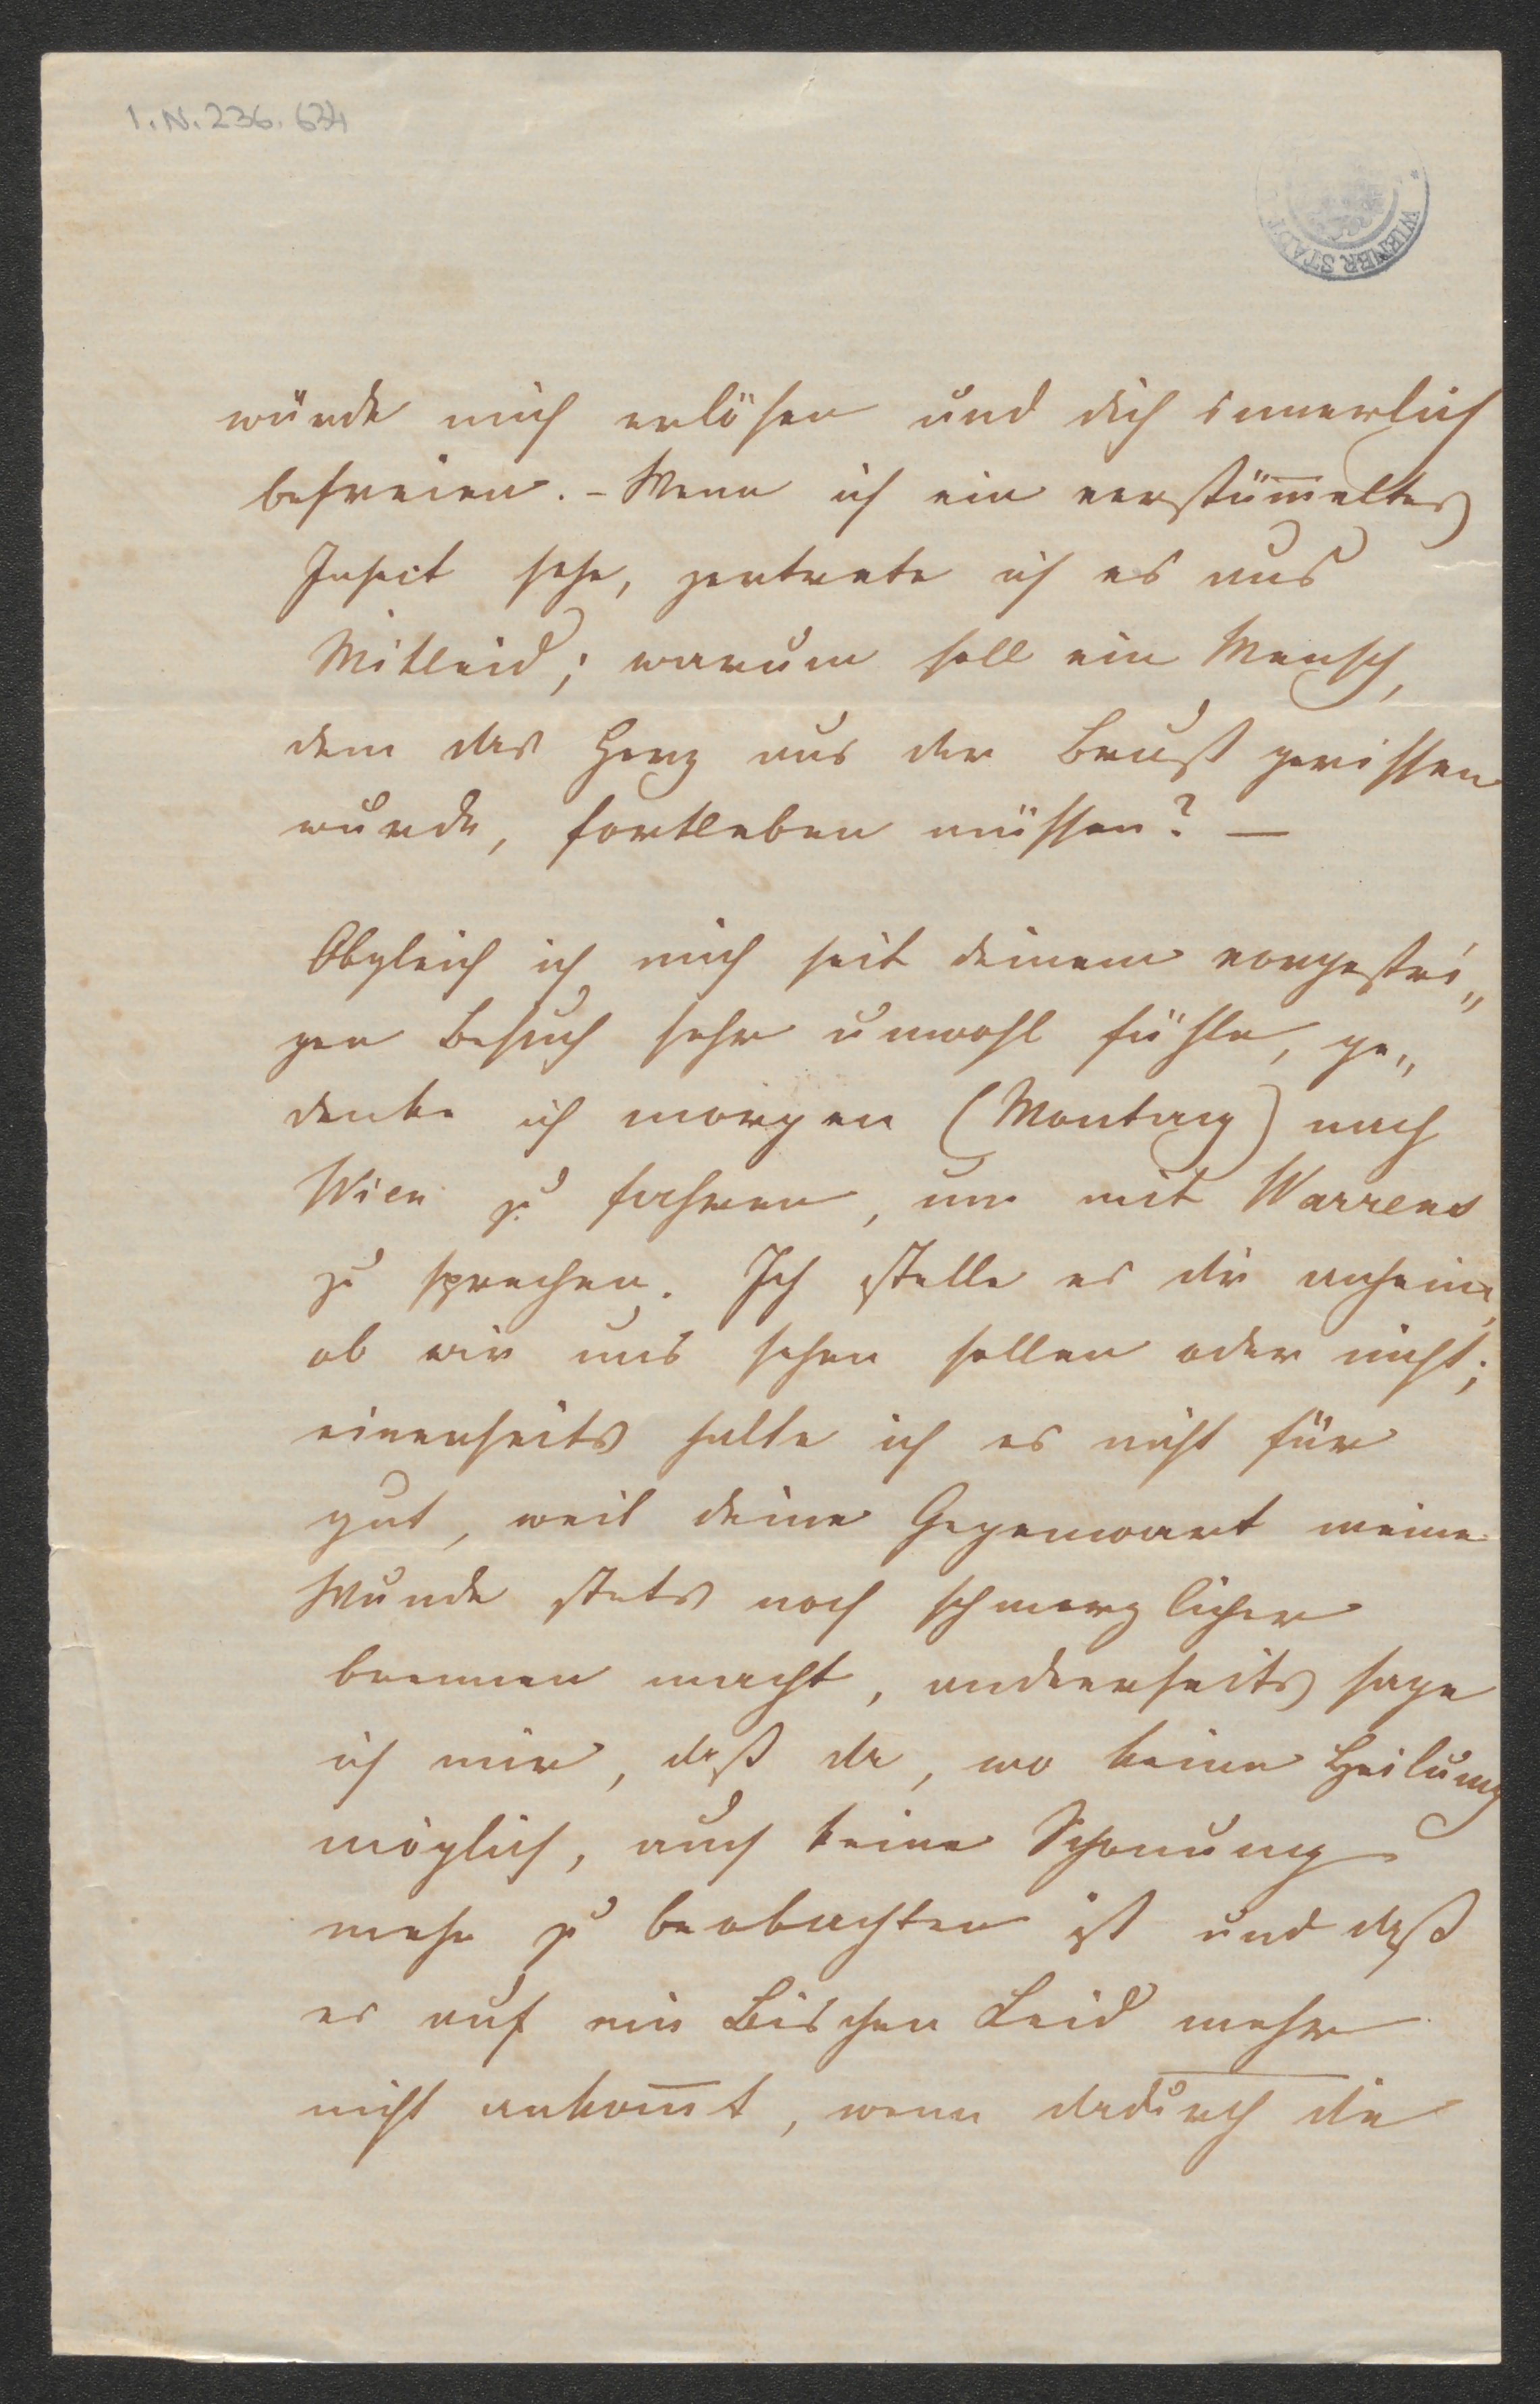 I.N. 236.634
WIENER STADT
würde mich erlösen und dich innerlich
befreien. – Wenn ich ein verstüm̅eltes
Insect sehe, zertrete ich es aus
Mitleid; warum soll ein Mensch,
dem das Herz aus der Brust gerissen
wurde, fortleben müssen? —
Obgleich ich mich seit deinem vorgestri„
gen Besuch sehr unwohl fühle, ge„
denke ich morgen (Montag) nach
Wien zu fahren, um mit Warrens
zu sprechen. Ich stelle es dir anheim,
ob wir uns sehen sollen oder nicht;
einerseits halte ich es nicht für
gut, weil deine Gegenwart meine
Wunde stets noch schmerzlicher
brennen macht, anderseits sage
ich mir, daß da, wo keine Heilung
möglich, auch keine Schonung
mehr zu beobachten ist und daß
es auf ein Bischen Leid mehr
nicht ankom̅t, wenn dadurch die